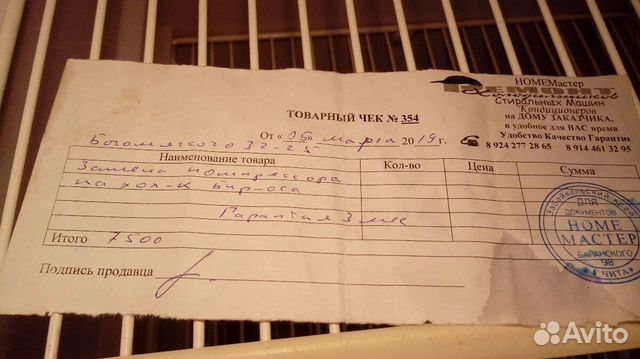 HOMEМастер
РЕМОНТ
Холодильников
Стиральных Машин
Кондиционеров
на ДОМУ ЗАКАЗЧИКА.
в удобное для ВАС время
Удобство Качество Гарантия
8 924 277 28 65 8 914 461 32 95
ТОВАРНЫЙ ЧЕК № 354
От «05» марта 2019 г.
Богомягкого 32-25
Наименование товара Кол-во Цена Сумма
Замена компрессора
на хол-к Бирюса
Гарантия 3 мес
Итого 7500
Подпись продавца
Забайкальский край
ДЛЯ
ДОКУМЕНТОВ
HOME
МАСТЕР
БАРАНСКОГО
98
г. ЧИТА
Avito